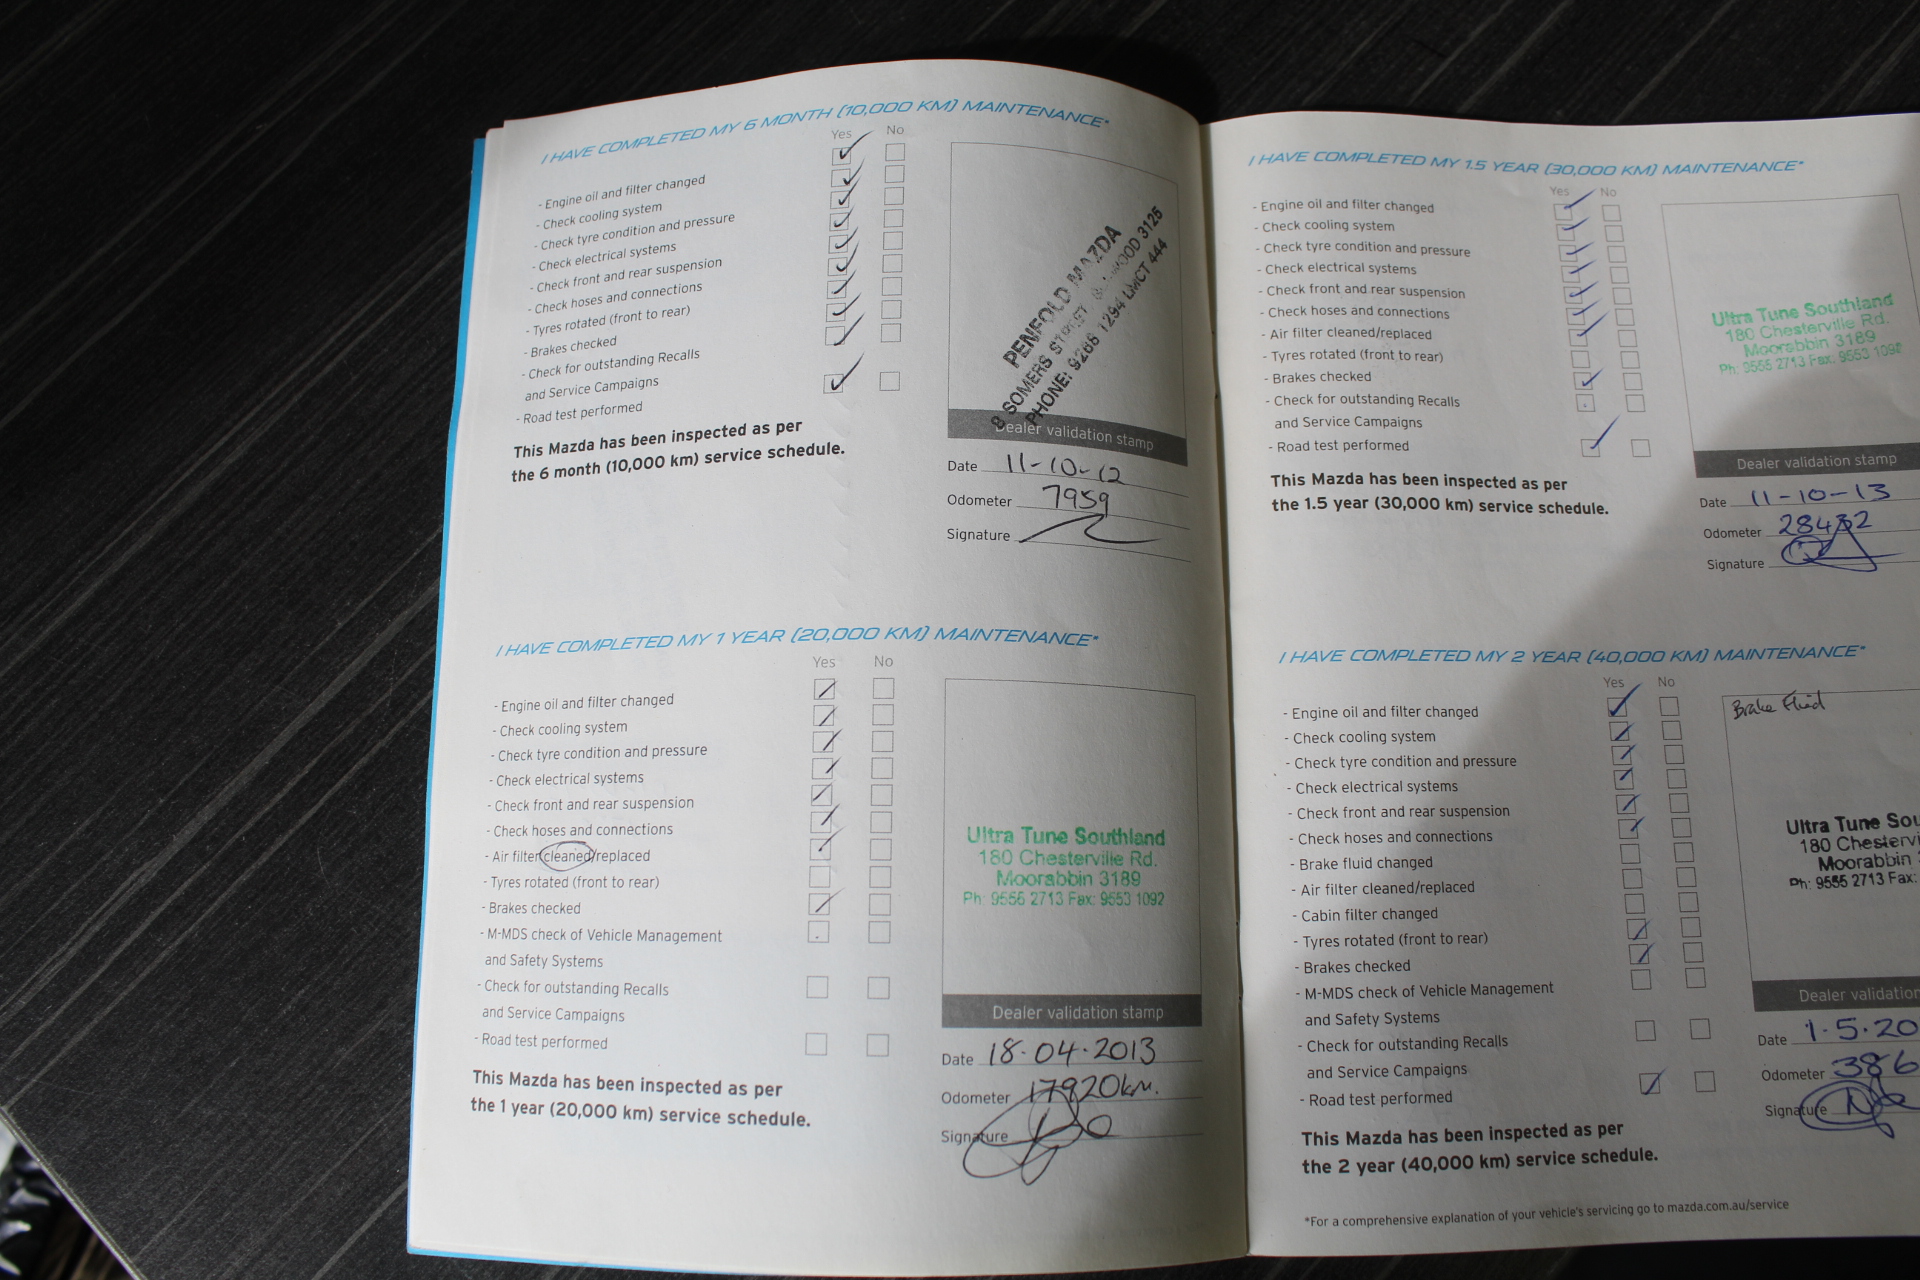 I HAVE COMPLETED MY 6 MONTH (10,000 KM) MAINTENANCE*
Yes No
- Engine oil and filter changed
- Check cooling system
- Check tyre condition and pressure
- Check electrical systems
- Check front and rear suspension
- Check hoses and connections
- Tyres rotated (front to rear)
- Brakes checked
- Check for outstanding Recalls
and Service Campaigns
- Road test performed
This Mazda has been inspected as per
the 6 month (10,000 km) service schedule.
PENFOLD MAZDA
8 SOMERS STREET 3125
PHONE: 9268 1294 LMCT 444
Dealer validation stamp
Date 11-10-12
Odometer 7959
Signature
I HAVE COMPLETED MY 1 YEAR (20,000 KM) MAINTENANCE*
Yes No
- Engine oil and filter changed
- Check cooling system
- Check tyre condition and pressure
- Check electrical systems
- Check front and rear suspension
- Check hoses and connections
- Air filter cleaned/replaced
- Tyres rotated (front to rear)
- Brakes checked
- M-MDS check of Vehicle Management
and Safety Systems
- Check for outstanding Recalls
and Service Campaigns
- Road test performed
This Mazda has been inspected as per
the 1 year (20,000 km) service schedule.
Ultra Tune Southland
180 Chesterville Rd.
Moorabbin 3189
Ph: 9556 2713 Fax: 9553 1092
Dealer validation stamp
Date 18.04.2013
Odometer 17920km.
Signature
I HAVE COMPLETED MY 1.5 YEAR (30,000 KM) MAINTENANCE*
Yes No
- Engine oil and filter changed
- Check cooling system
- Check tyre condition and pressure
- Check electrical systems
- Check front and rear suspension
- Check hoses and connections
- Air filter cleaned/replaced
- Tyres rotated (front to rear)
- Brakes checked
- Check for outstanding Recalls
and Service Campaigns
- Road test performed
This Mazda has been inspected as per
the 1.5 year (30,000 km) service schedule.
Ultra Tune Southland
180 Chesterville Rd.
Moorabbin 3189
Ph: 9556 2713 Fax: 9553 1092
Dealer validation stamp
Date 11-10-13
Odometer 28432
Signature
I HAVE COMPLETED MY 2 YEAR (40,000 KM) MAINTENANCE*
Yes No
- Engine oil and filter changed
- Check cooling system
- Check tyre condition and pressure
- Check electrical systems
- Check front and rear suspension
- Check hoses and connections
- Brake fluid changed
- Air filter cleaned/replaced
- Cabin filter changed
- Tyres rotated (front to rear)
- Brakes checked
- M-MDS check of Vehicle Management
and Safety Systems
- Check for outstanding Recalls
and Service Campaigns
- Road test performed
This Mazda has been inspected as per
the 2 year (40,000 km) service schedule.
Brake Fluid
Ultra Tune Sou
180 Chestervi
Moorabbin
Ph: 9556 2713 Fax:
Dealer validation
Date 1.5.20
Odometer 386
Signature
*For a comprehensive explanation of your vehicle's servicing go to mazda.com.au/service